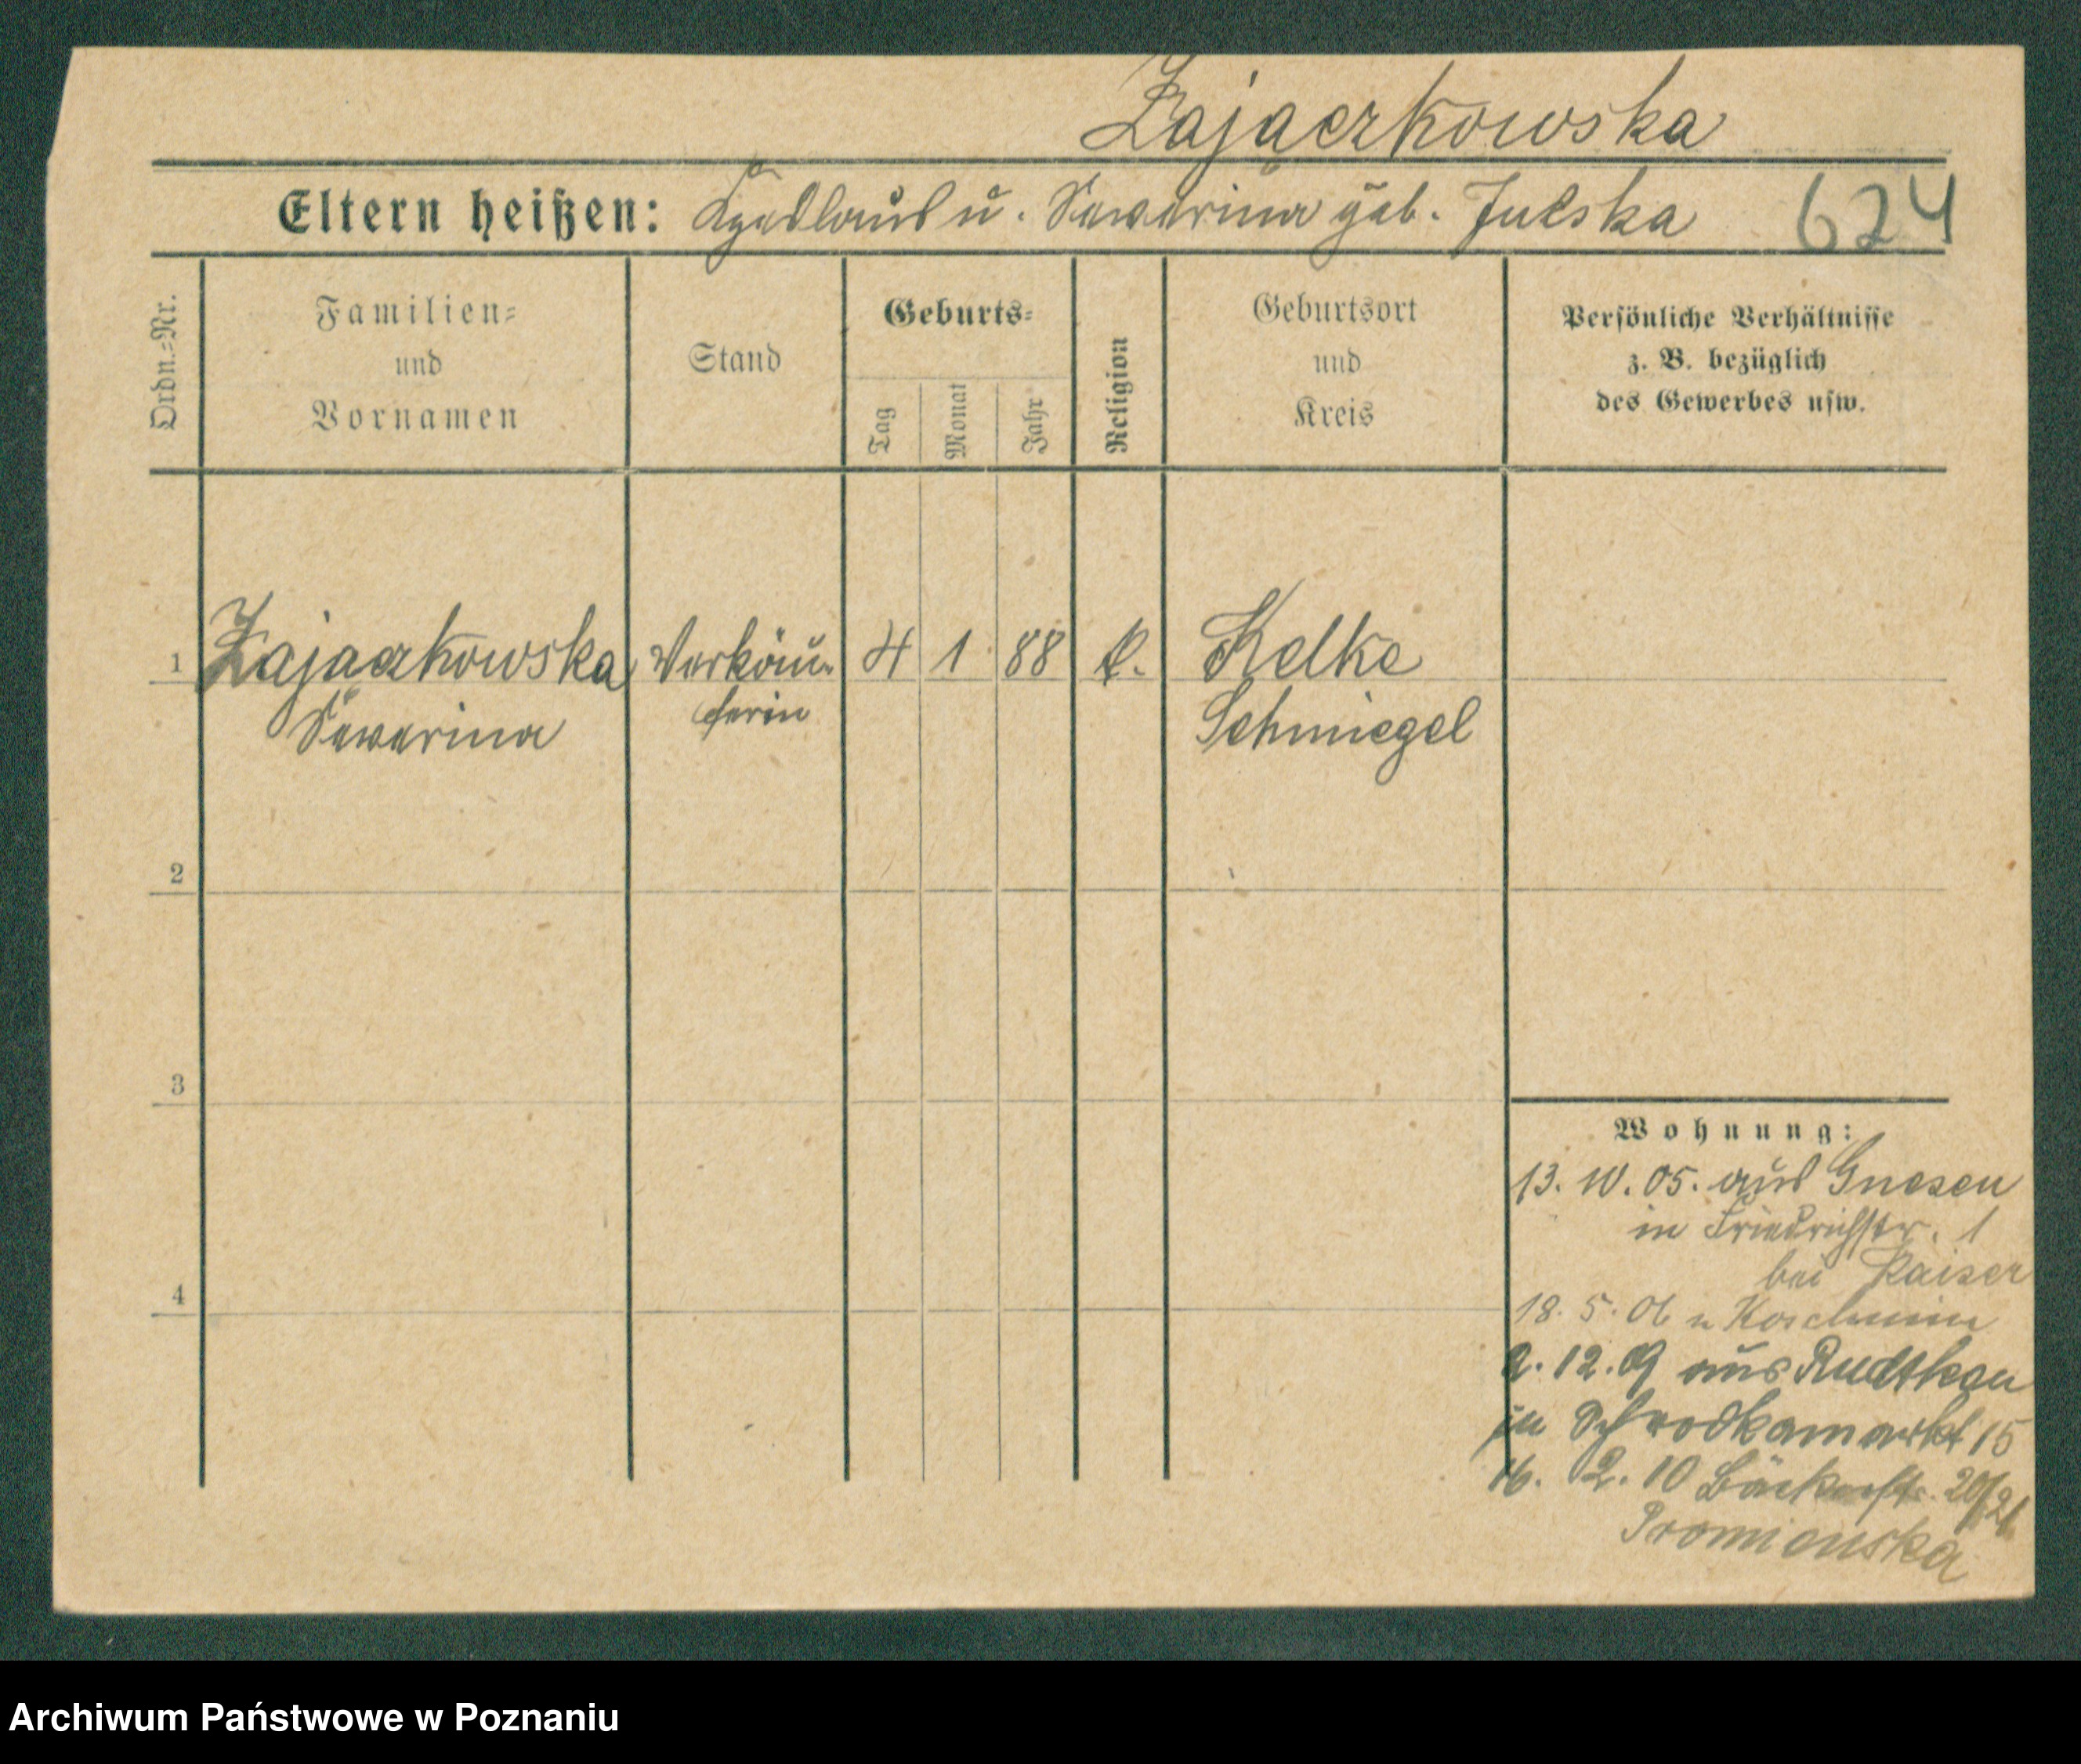 Zajączkowska
Eltern heißen: u. Severina geb. Julska 624
Ordn.=Nr.
Familien=
und
Vornamen
Stand
Geburts=
Tag
Monat
Jahr
Religion
Geburtsort
und
Kreis
Persönliche Verhältnisse
z. B. bezüglich
des Gewerbes usw.
1 Zajaczkowska Verkäu- 4 1 88 k. Kelke
Severina ferin Schmiegel
2
3
4
Wohnung:
13. 10. 05. aus Gnesen
in Friedrichstr. 1
bei Kaiser
18. 5. 06 n Koschmin
2. 12. 09 aus
in Schrodkamarkt 15
16. 2. 10 Bäckerstr. 20/21
Promienska
Archiwum Państwowe w Poznaniu